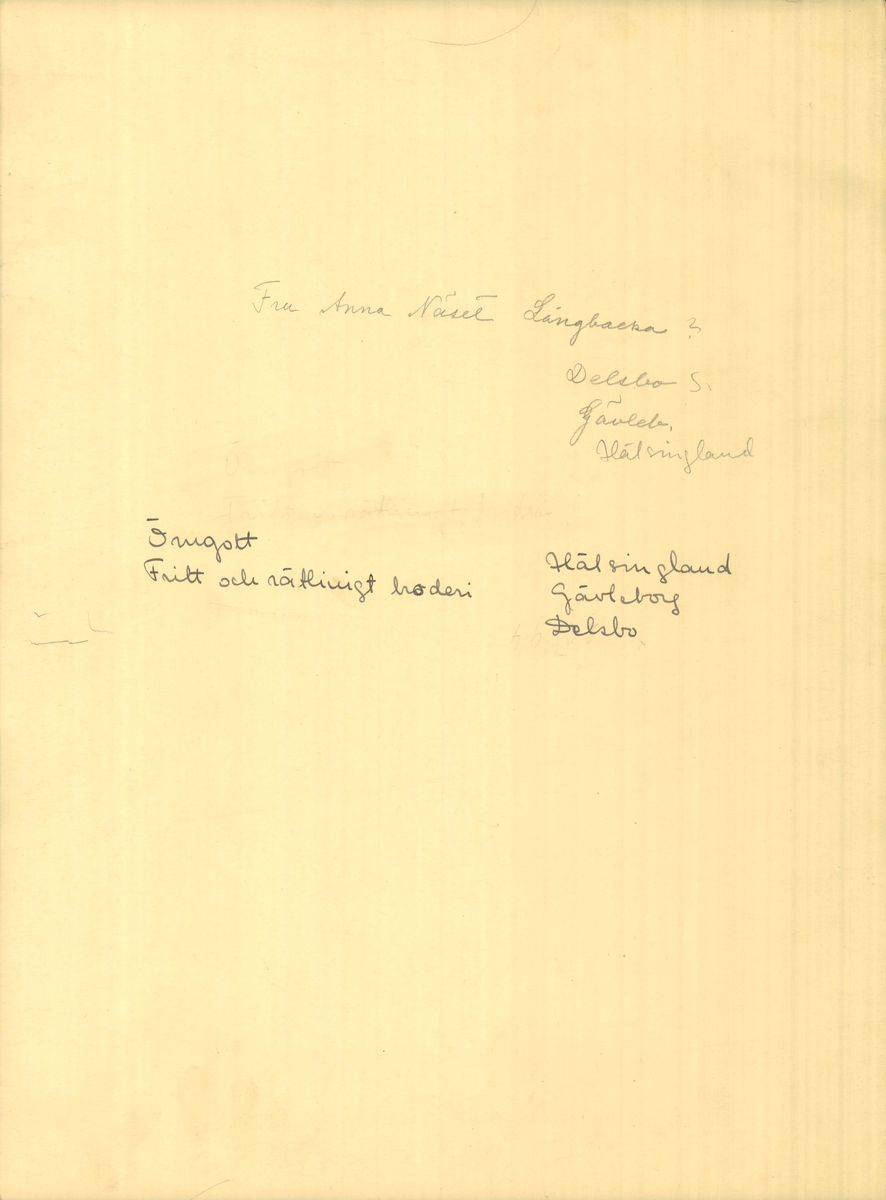 Fru Anna Näset Långbacka ?
Delsbo S.
Gävleb.
Hälsingland
Örngott
Fritt och rätlinigt broderi
Hälsingland
Gävleborg
Delsbo